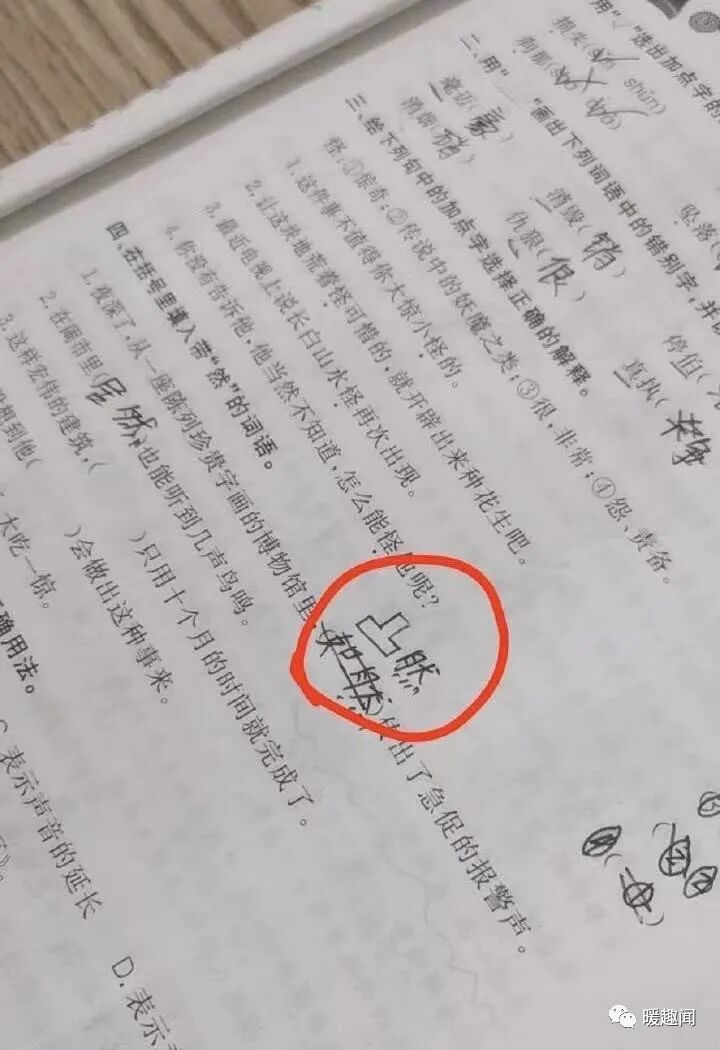 用"√"选出加点字的
损失(sǔn shǔn)
二、用"  "画出下列词语中的错别字,并
坠落(
毫迈(豪) 消毁(销) 停值(
消仰( 仇狠(恨) 真执(
三、给下列句中的加点字选择正确的解释。
怪:①惊奇;②传说中的妖魔之类;③很,非常;④怨、责备。
1.这件事不值得你大惊小怪的。
2.让这块地荒着怪可惜的,就开辟出来种花生吧。
3.最近电视上说长白山水怪再次出现。
4.你没有告诉他,他当然不知道,怎么能怪他呢?
四、在括号里填入带"然"的词语。
凸然
1.夜深了,从一座陈列珍贵字画的博物馆里,( )传出了急促的报警声。
2.在闹市里(居然)也能听到几声鸟鸣。
3.这样宏伟的建筑,( )只用十个月的时间就完成了。
想到他( )会做出这种事来。
大吃一惊。
确用法。
C.表示声音的延长
D.表示
暖趣闻